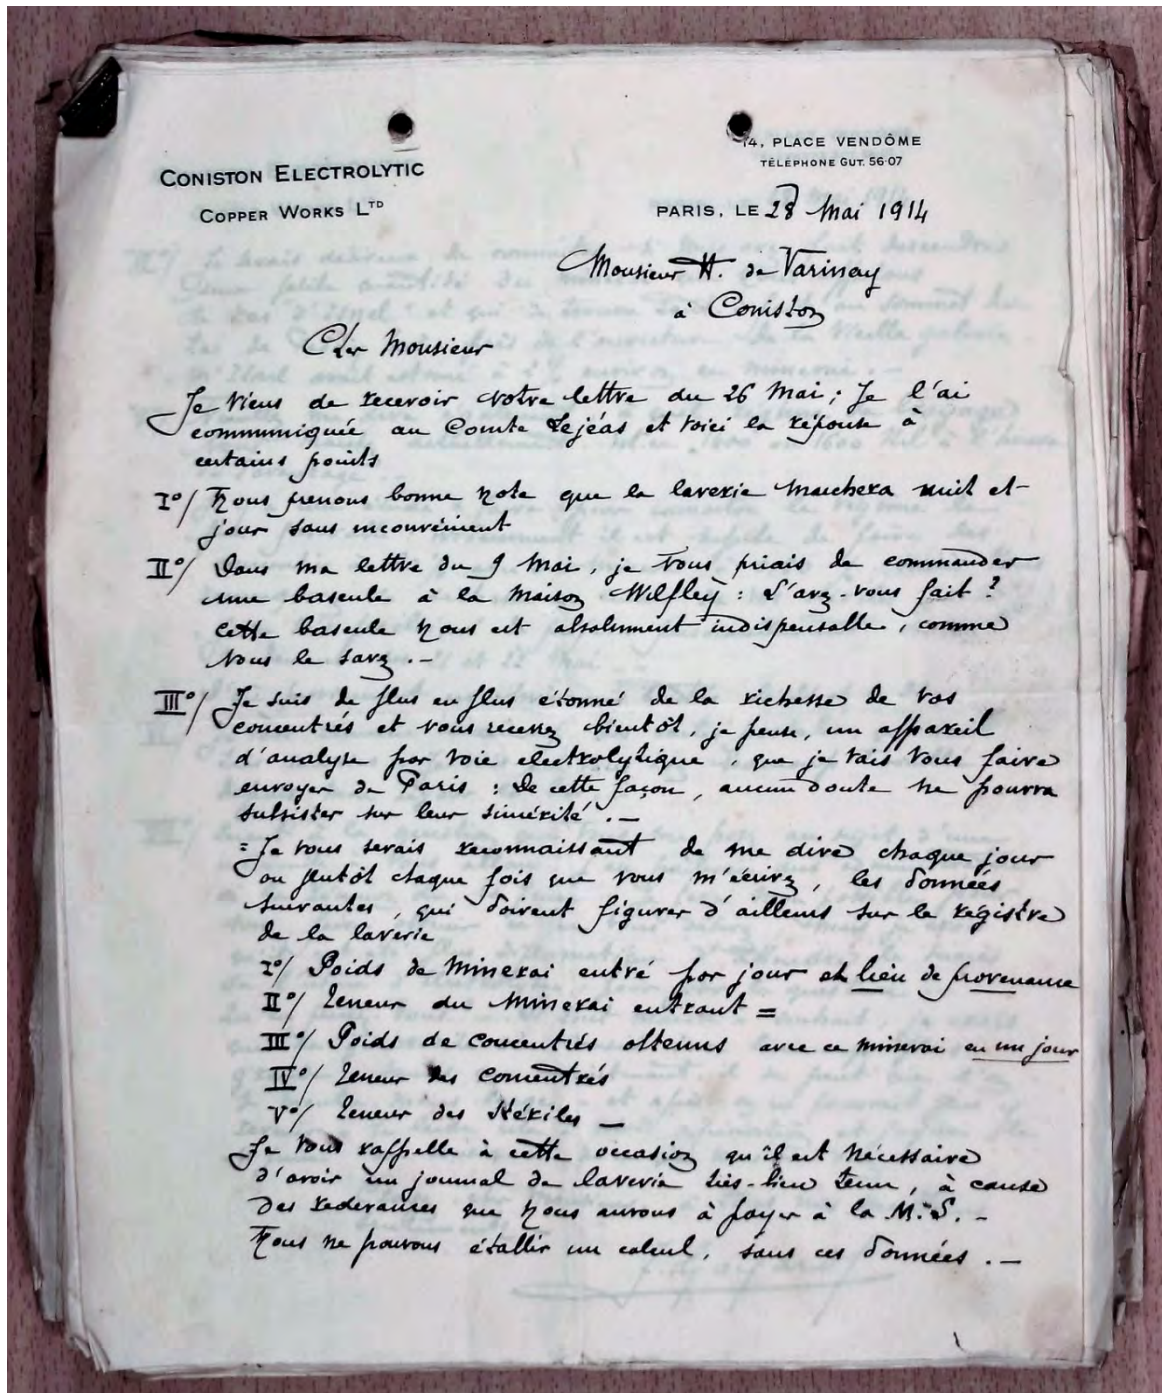 CONISTON ELECTROLYTIC
COPPER WORKS LTD
14, PLACE VENDÔME
TÉLÉPHONE GUT. 56-07
PARIS, LE 28 Mai 1914
Monsieur H. de Varinay
à Coniston
Cher Monsieur
Je viens de recevoir votre lettre du 26 Mai ; Je l'ai
communiquée au Comte Lejéas et voici la réponse à
certains points
I°/ Nous prenons bonne note que la laverie marchera nuit et
jour sans inconvénient
II°/ Dans ma lettre du 9 Mai, je vous priais de commander
une bascule à la maison Wilfley : L'avez-vous fait ?
Cette bascule nous est absolument indispensable, comme
vous le savez . —
III°/ Je suis de plus en plus étonné de la richesse de vos
concentrés et vous recevrez bientôt, je pense, un appareil
d'analyse par voie electrolytique, que je vais vous faire
envoyer de Paris : De cette façon, aucun doute ne pourra
subsister sur leur sincérité . —
= Je vous serais reconnaissant de me dire chaque jour
ou plutôt chaque fois que vous m'écrivez, les données
suivantes, qui doivent figurer d'ailleurs sur le régistre
de la laverie
I°/ Poids de Minerai entré par jour et lieu de provenance
II°/ Teneur du Minerai entrant =
III°/ Poids de concentrés obtenus avec ce minerai en un jour
IV°/ Teneur des concentrés
V°/ Teneur des stériles —
Je vous rappelle à cette occasion qu'il est nécessaire
d'avoir un journal de laverie très-bien tenu, à cause
des redevances que nous aurons à payer à la M.S. —
Nous ne pouvons établir un calcul, sans ces données . —